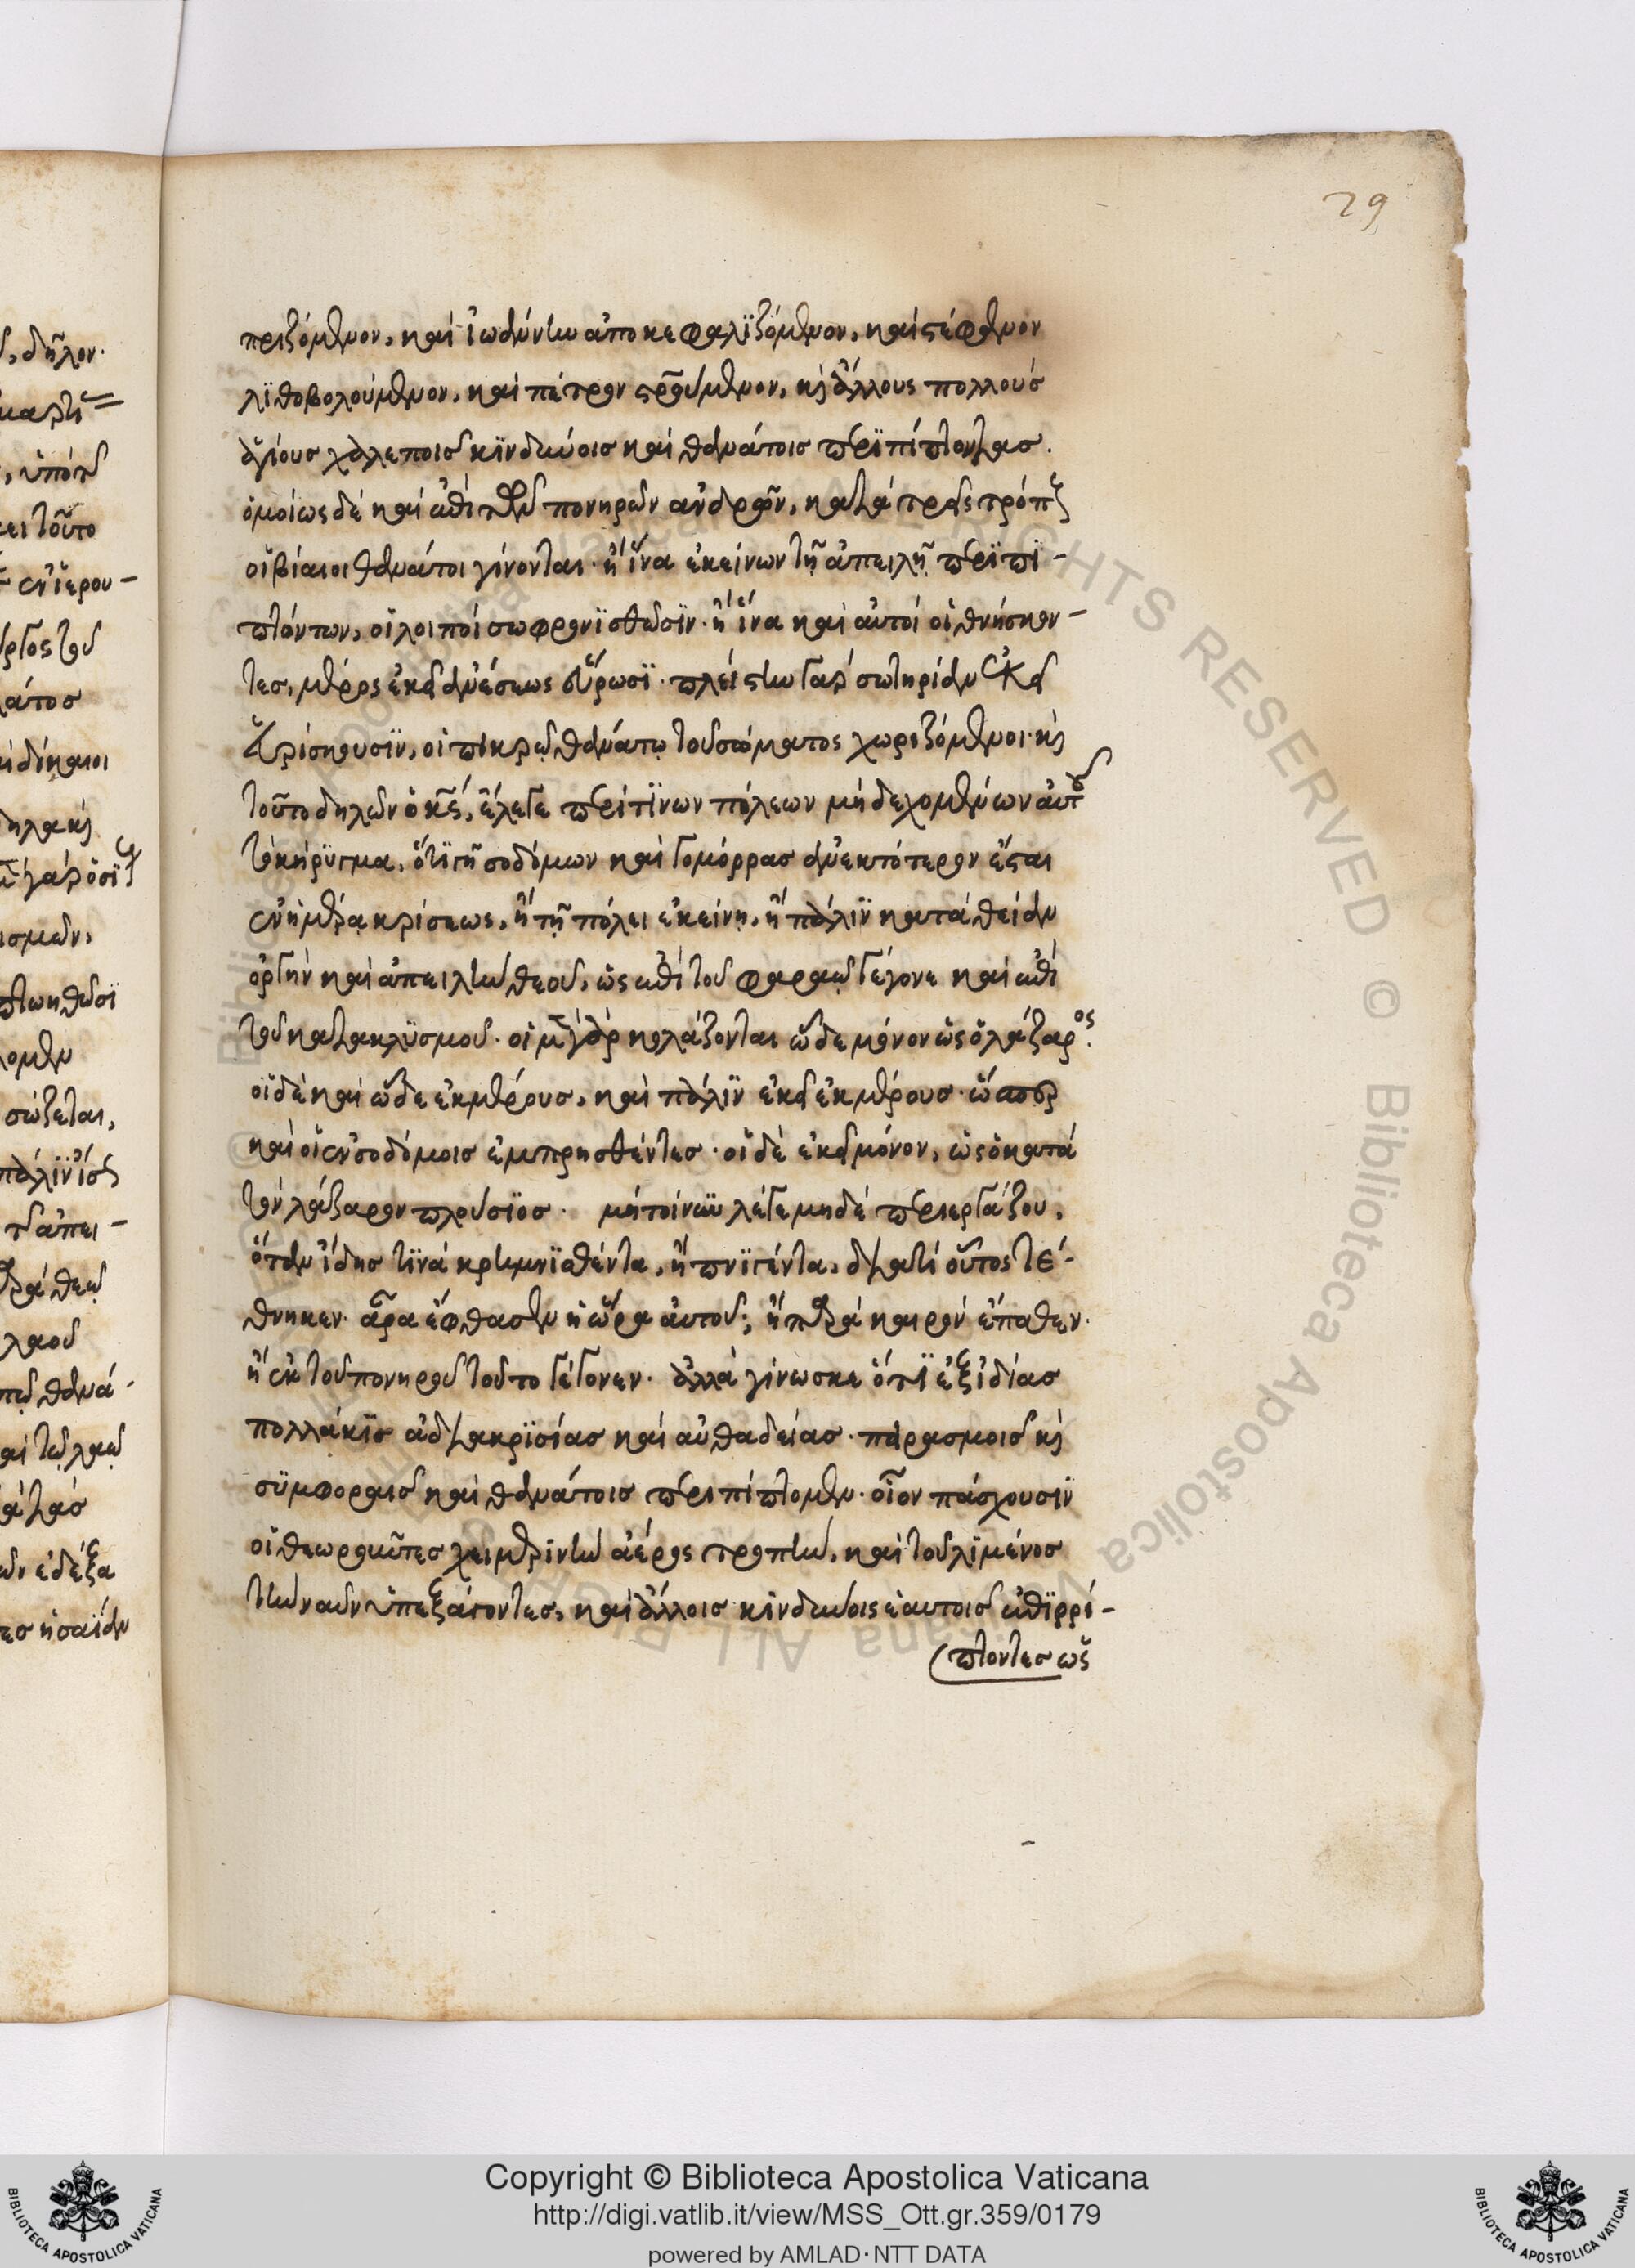 29
πριζόμενον, καὶ ἰωάννην ἀποκεφαλϊζόμενον, καὶ στέφανον
λϊθοβολούμενον, καὶ πέτρον στρούμενον, κὶ ἄλλους πολλοὺς
ἁγίους χαλεποῖς κϊνδύνοις καὶ θανάτοις περϊπίπτοντας.
ὁμοίως δὲ καὶ ἐπὶ τῶν πονηρῶν ἀνδρῶν, κατὰ τρεῖς τρόπους
οἱ βίαιοι θάνατοι γίνονται· ἢ ἵνα ἐκείνων τῇ ἀπειλῇ περϊπϊ-
πτόντων, οἱ λοιποὶ σωφρονϊσθῶσϊν· ἢ ἵνα καὶ αὐτοὶ οἱ θνήσκον-
τες, μέρος ἐκεῖ ἀνέσεως εὕρωσϊ· πλείστην γὰρ σωτηρίαν ἐκεῖ
εὑρίσκουσϊν, οἱ πικρῷ θανάτῳ τοῦ σώματος χωριζόμενοι· κὶ
τοῦτο δηλῶν ὁ κς, ἔλεγε περὶ τϊνων πόλεων μὴ δεχομένων αὐτοῦ
τὸ κήρϋγμα, ὅτϊ γῇ σοδόμων καὶ γομόρρας ἀνεκτότερον ἔσται
ἐν ἡμέρᾳ κρίσεως, ἢ τῇ πόλει ἐκείνῃ, ἢ πάλϊν κατὰ θείαν
ὀργὴν καὶ ἀπειλὴν θεοῦ, ὡς ἐπὶ τοῦ φαραὼ γέγονε καὶ ἐπὶ
τοῦ κατακλϋσμοῦ· οἱ μὲν γὰρ κολάζονται ὧδε μόνον ὡς ὁ λάζαρος·
οἱ δὲ καὶ ὧδε ἐκ μέρους, καὶ πάλϊν ἐκεῖ ἐκ μέρους· ὥσπερ
καὶ οἱ ἐν σοδόμοις ἐμπρησθέντες· οἱ δὲ ἐκεῖ μόνον, ὡς ὁ κατὰ
τὸν λάζαρον πλούσϊος· μὴ τοίνϋν λέγε μηδὲ περιεργάζου,
ὅταν ἴδῃς τϊνὰ κρημνϊσθέντα, ἢ πνϊγέντα, διατὶ οὗτος τέ-
θνηκεν· ἆρα ἔφθασεν ἡ ὥρα αὐτοῦ; ἢ παρὰ καιρὸν ἔπαθεν·
ἢ ἐκ τοῦ πονηροῦ τοῦτο γέγονεν· ἀλλὰ γίνωσκε ὅτϊ ἐξ ἰδίας
πολλάκϊς ἀδιακρϊσίας καὶ αὐθαδείας· πειρασμοῖς κὶ
σϋμφοραῖς καὶ θανάτοις περιπίπτομεν· οἷον πάσχουσϊν
οἱ θεωροῦντες χειμερινὴν ἀέρος τροπὴν, καὶ τοῦ λϊμένος
τὴν ναῦν ὑπεξάγοντες, καὶ ἄλλοις κϊνδύνοις ἑαυτοῖς ἐπϊρρί-
πτοντες ὡς
Copyright © Biblioteca Apostolica Vaticana
http://digi.vatlib.it/view/MSS_Ott.gr.359/0179
powered by AMLAD·NTT DATA